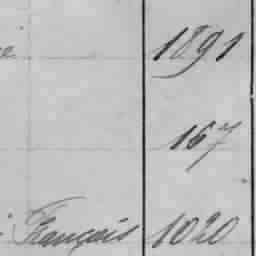 1891
167
Français 1020